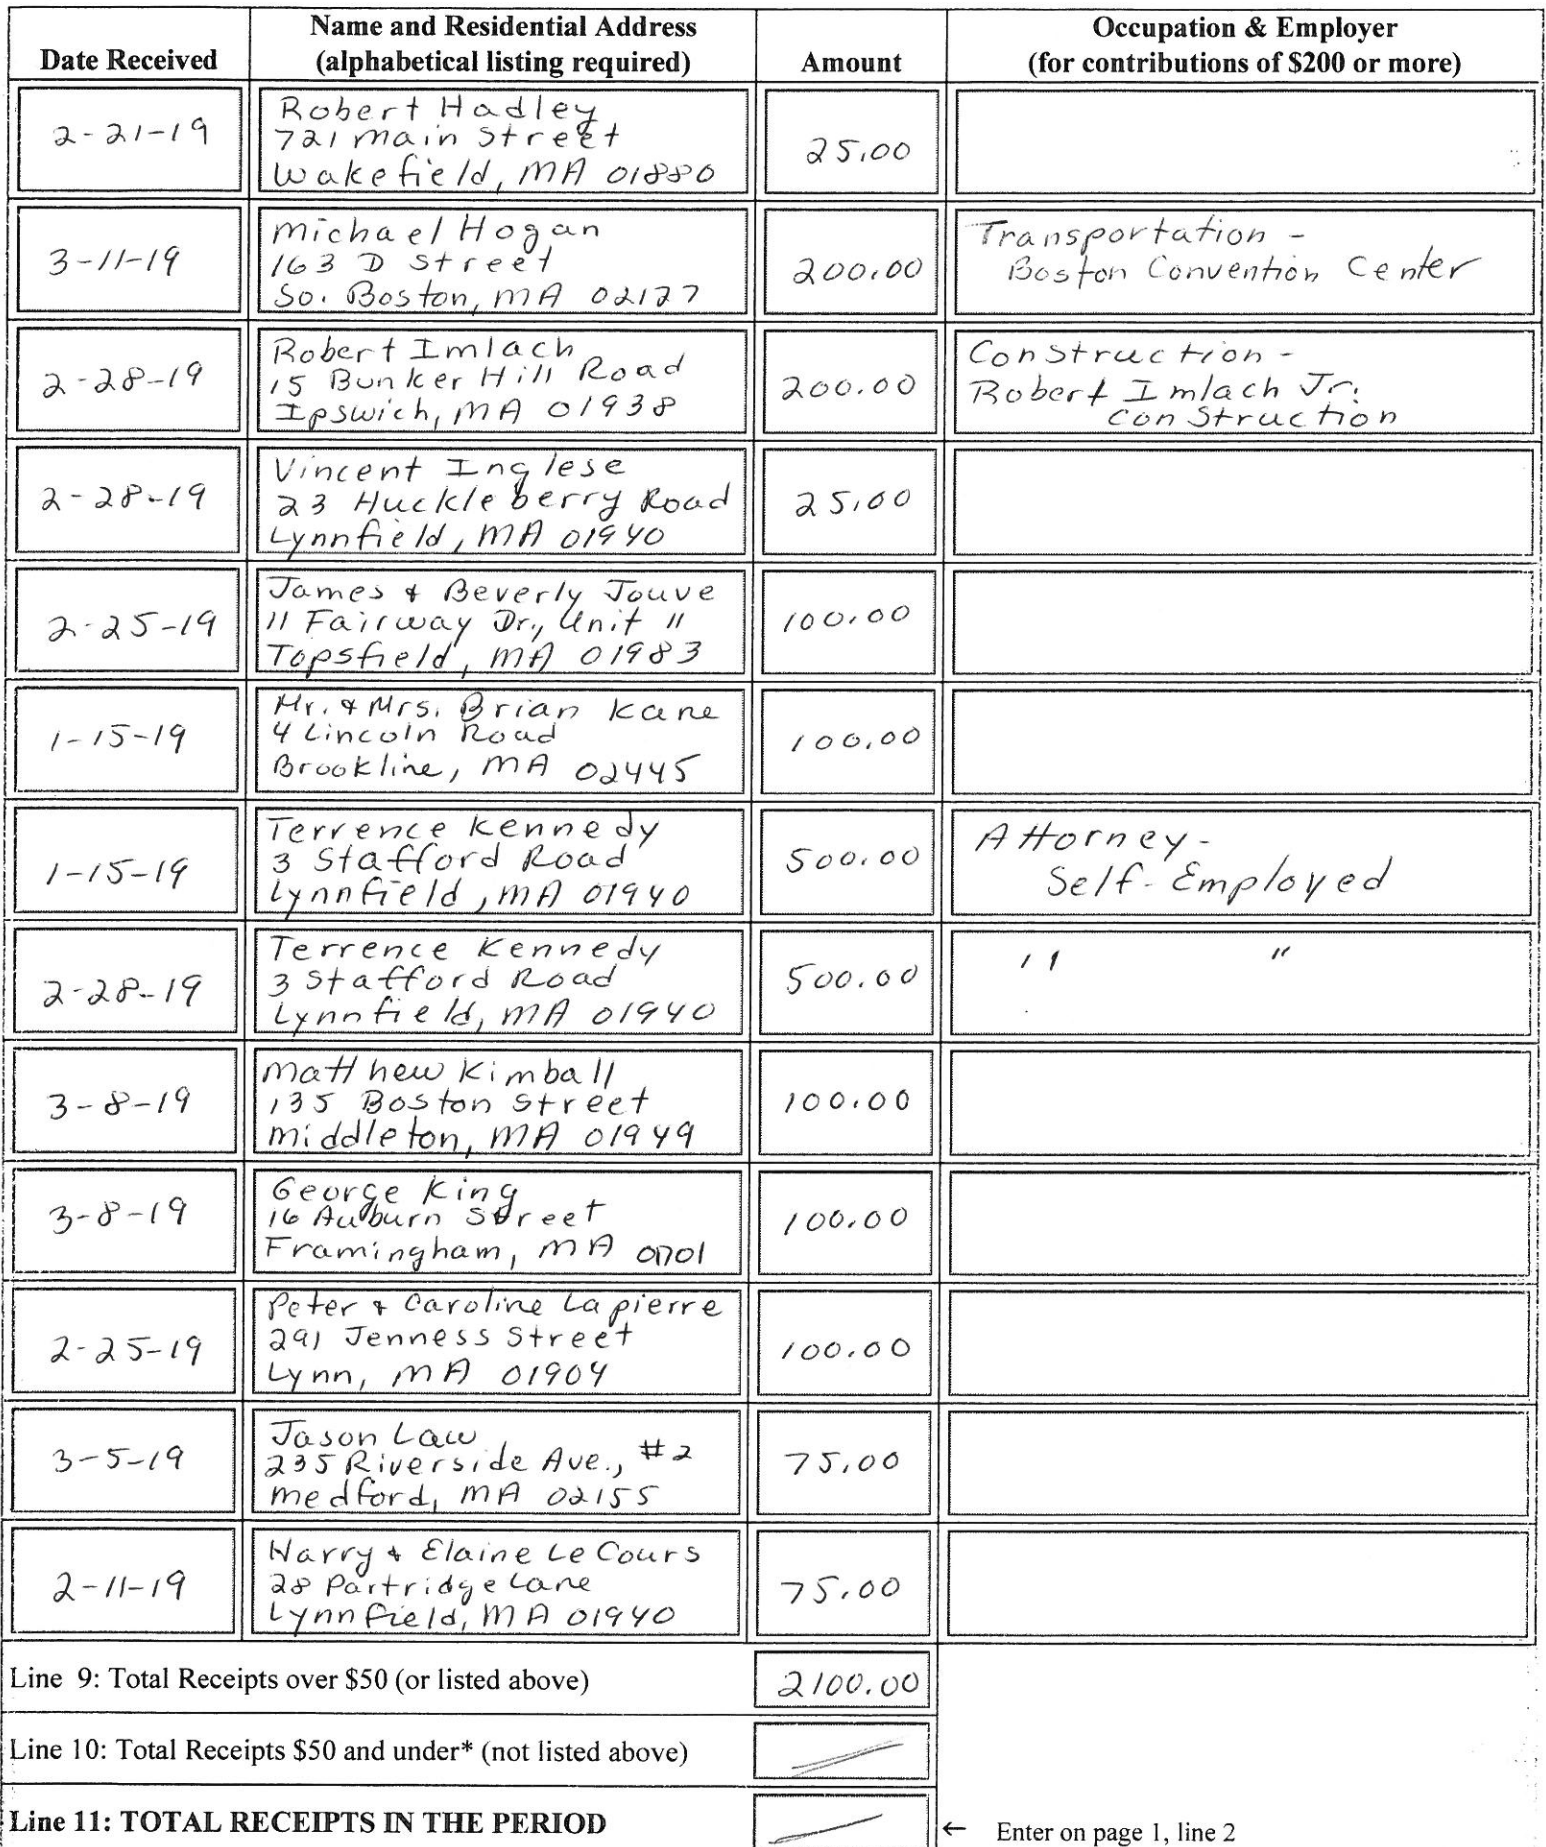 Date Received
Name and Residential Address
(alphabetical listing required)
Amount
Occupation & Employer
(for contributions of $200 or more)
2-21-19
Robert Hadley
721 Main Street
Wakefield, MA 01880
25.00
3-11-19
Michael Hogan
163 D Street
So. Boston, MA 02127
200.00
Transportation -
Boston Convention Center
2-28-19
Robert Imlach
15 Bunker Hill Road
Ipswich, MA 01938
200.00
Construction -
Robert Imlach Jr.
Construction
2-28-19
Vincent Inglese
23 Huckleberry Road
Lynnfield, MA 01940
25.00
2-25-19
James & Beverly Jouve
11 Fairway Dr., Unit 11
Topsfield, MA 01983
100.00
1-15-19
Mr. & Mrs. Brian Kane
4 Lincoln Road
Brookline, MA 02445
100.00
1-15-19
Terrence Kennedy
3 Stafford Road
Lynnfield, MA 01940
500.00
Attorney -
Self-Employed
2-28-19
Terrence Kennedy
3 Stafford Road
Lynnfield, MA 01940
500.00
" "
3-8-19
Matthew Kimball
135 Boston Street
Middleton, MA 01949
100.00
3-8-19
George King
16 Auburn Street
Framingham, MA 01701
100.00
2-25-19
Peter & Caroline Lapierre
291 Jenness Street
Lynn, MA 01904
100.00
3-5-19
Jason Law
235 Riverside Ave., #2
Medford, MA 02155
75.00
2-11-19
Harry & Elaine LeCours
28 Partridge Lane
Lynnfield, MA 01940
75.00
Line 9: Total Receipts over $50 (or listed above)
2100.00
Line 10: Total Receipts $50 and under* (not listed above)
Line 11: TOTAL RECEIPTS IN THE PERIOD
← Enter on page 1, line 2